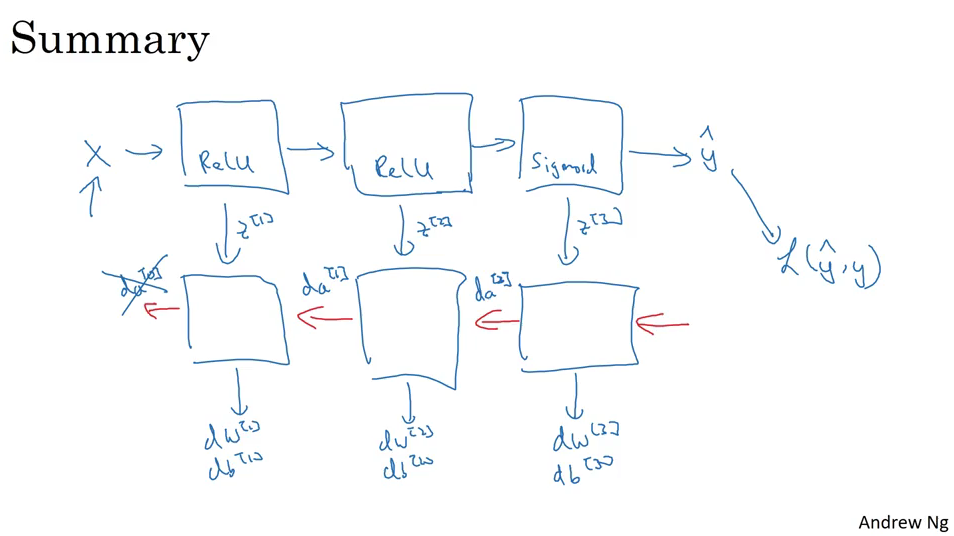 Summary
X → ReLU → ReLU → Sigmoid → ŷ
z[1] z[2] z[3]
L(ŷ, y)
da[0] da[1] da[2]
dw[1] dw[2] dw[3]
db[1] db[2] db[3]
Andrew Ng